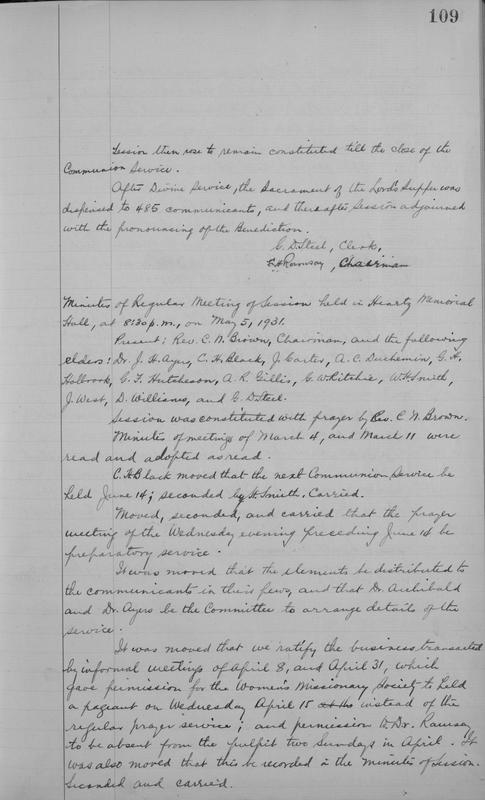 109
Session then rose to remain constituted till the close of the
Communion Service.
After Divine Service, the Sacrament of the Lord's Supper was
dispensed to 485 communicants, and thereafter Session adjourned
with the pronouncing of the Benediction.
G. D. Steel, Clerk,
Ramsay, Chairman
Minutes of Regular Meeting of Session held in Heartz Memorial
Hall, at 8:30 p.m., on May 5, 1931.
Present: Rev. C. N. Brown, Chairman, and the following
elders: Dr. J. H. Ayers, C. H. Black, J. Carter, A. C. Duchemin, G. H.
Holbrook, G. F. Hutcheson, A. R. Gillis, G. W. Ritchie, W. H. Smith,
J. West, D. Williams, and G. D. Steel.
Session was constituted with prayer by Rev. C. N. Brown.
Minutes of meetings of March 4, and March 11 were
read and adopted as read.
C. H. Black moved that the next Communion Service be
held June 14; seconded by H. Smith. Carried.
Moved, seconded, and carried that the prayer
meeting of the Wednesday evening preceding June 14 be
preparatory service.
It was moved that the elements be distributed to
the communicants in their pews, and that Dr. Archibald
and Dr. Ayers be the Committee to arrange details of the
service.
It was moved that we ratify the business transacted
by informal meetings of April 8, and April 31, which
gave permission for the Women's Missionary Society to hold
a pageant on Wednesday April 15 instead of the
regular prayer service; and permission to Dr. Ramsay
to be absent from the pulpit two Sundays in April. It
was also moved that this be recorded in the minutes of Session.
Seconded and carried.